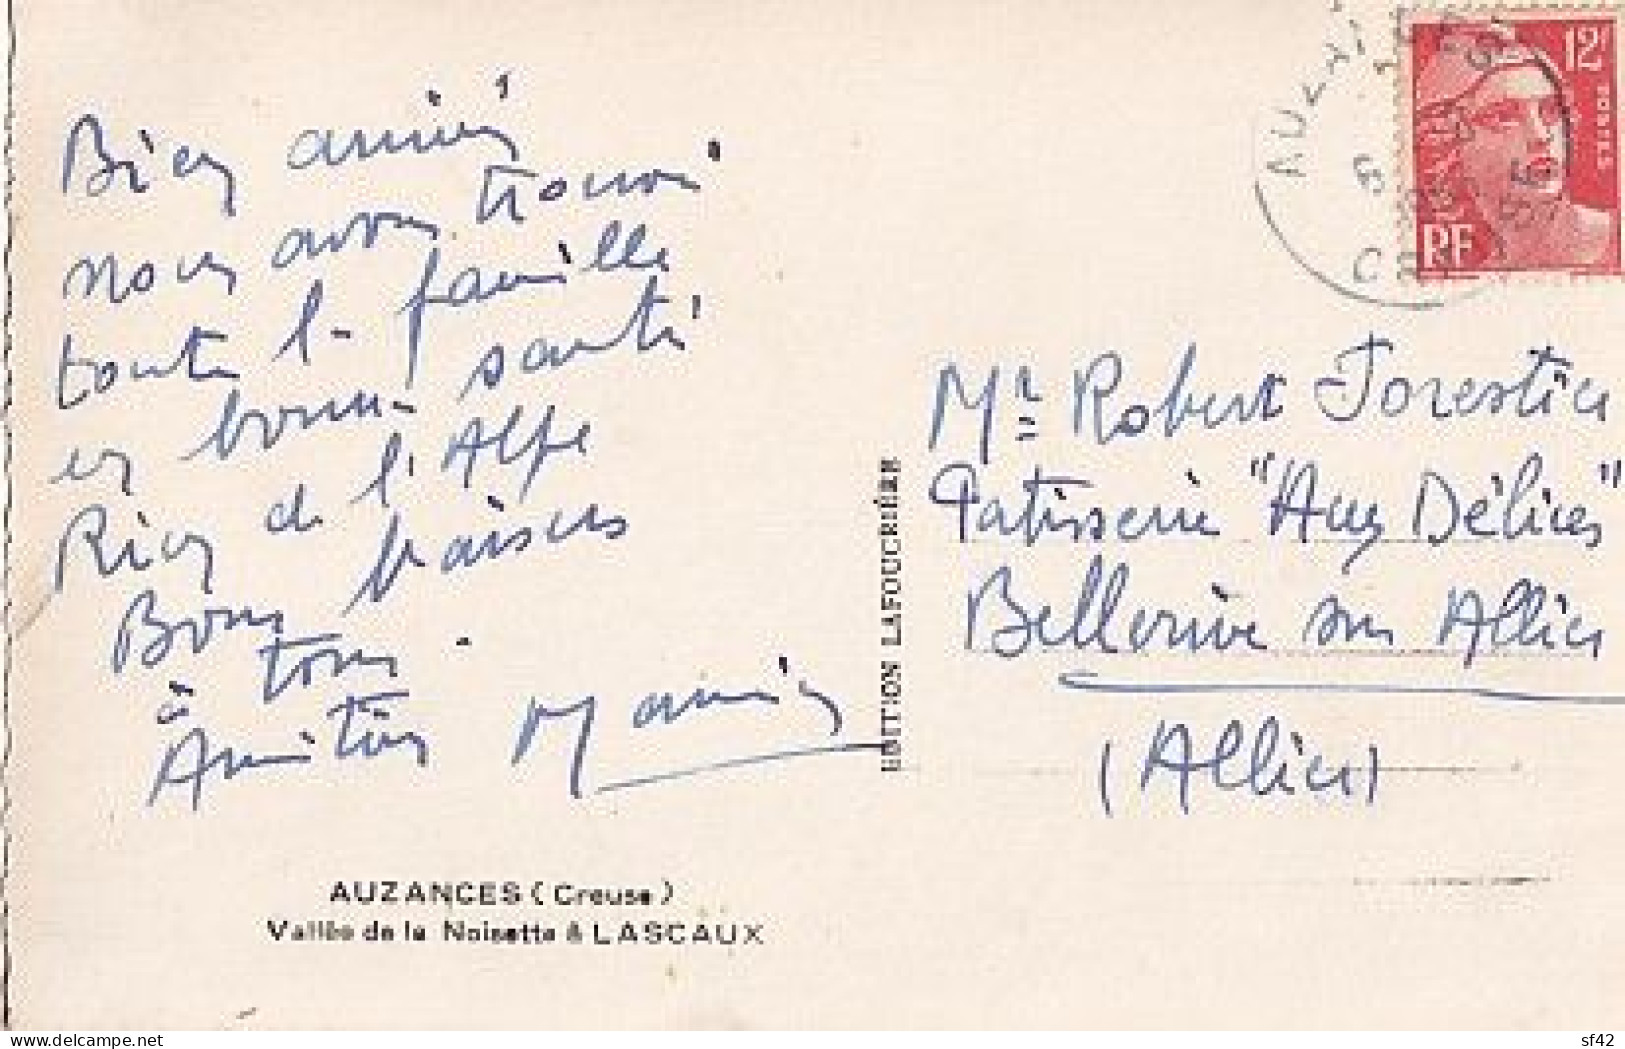 Bien arrivés
nous avons trouvé
toute la famille
en bonne santé
Rien de l'Alpe
Bons baisers
à tous.
Amitiés Mamie
AUZANCES (Creuse)
Vallée de la Noisette à LASCAUX
EDITION LAFOUCRIÈRE
12F
POSTES
RF
AUZAN
Mr Robert Forestier
Patisserie "Aux Délices"
Bellerive sur Allier
(Allier)
delcampe.net
sf42